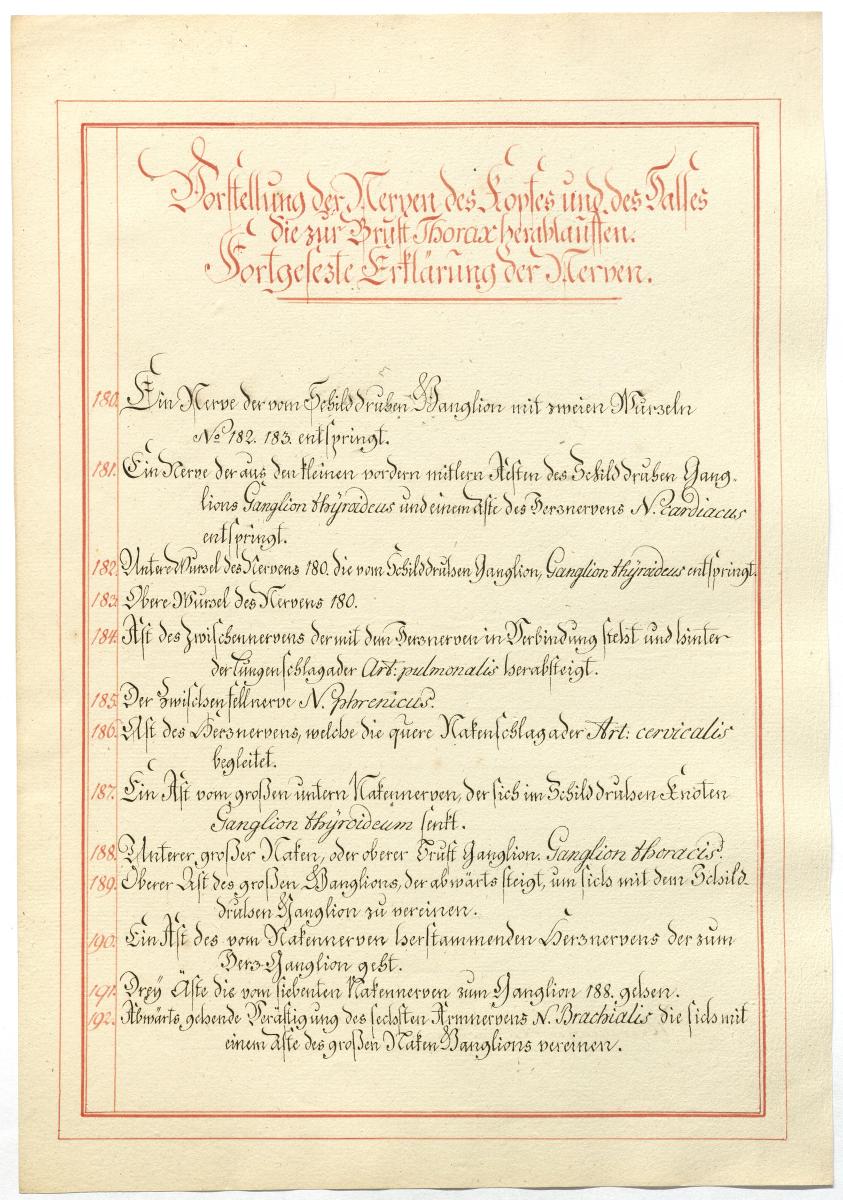 Vorstellung der Nerven des Kopfes und des Halses
die zur Brust Thorax herablauffen.
Fortgesezte Erklärung der Nerven.
180. Ein Nerve der vom Schilddruhsen Ganglion mit zweien Wurzeln
No 182. 183. entspringt.
181. Ein Nerve der aus den kleinen vordern mitlern Aesten des Schilddruhsen Gang-
lions Ganglion thÿroideus und einem Aste des Herznervens N. cardiacus
entspringt.
182. Untere Wursel des Nervens 180. die vom Schilddruhsen Ganglion, Ganglion thÿroideus entspringt.
183. Obere Wursel des Nervens 180.
184. Ast des Zwischennervens der mit dem Herznerven in Verbindung steht und hinter
der Lungenschlagader Art: pulmonalis herabsteigt.
185. Der Zwischenfellnerve N. phrenicus.
186. Ast des Herznervens, welche die quere Nakenschlagader Art: cervicalis
begleitet.
187. Ein Ast vom großen untern Nakennerven, der sich im Schilddruhsen Knoten
Ganglion thÿroideum senkt.
188. Unterer großer Naken, oder oberer Brust Ganglion. Ganglion thoracis.
189. Oberer Ast des großen Ganglions, der abwärts steigt, um sich mit dem Schild-
druhsen Ganglion zu vereinen.
190. Ein Ast des vom Nakennerven herstammenden Herznervens der zum
Herz-Ganglion geht.
191. Dreÿ Äste die vom siebenten Nakennerven zum Ganglion 188. gehen.
192. Abwärts gehende Verästigung des sechsten Armnervens N. Brachialis die sich mit
einem Aste des großen Naken Ganglions vereinen.